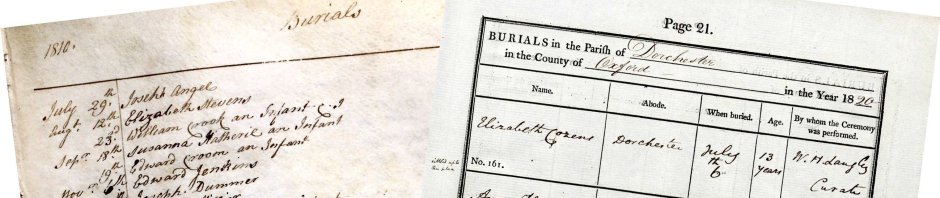 Burials
1810.
July 29th Joseph Angel
Augt. 12th Elizabeth Stevens
23d William Crook an Infant
Sepr. 18th Susanna Hatherie an Infant
19th Edward Croom an Infant
Novr. 6th Edward Jenkins
Joseph Dummer
Page 21.
BURIALS in the Parish of Dorchester
in the County of Oxford in the Year 1820
Name. Abode. When buried. Age. By whom the Ceremony was performed.
Elizabeth Cozens Dorchester July 6th 13 years Curate
No. 161.